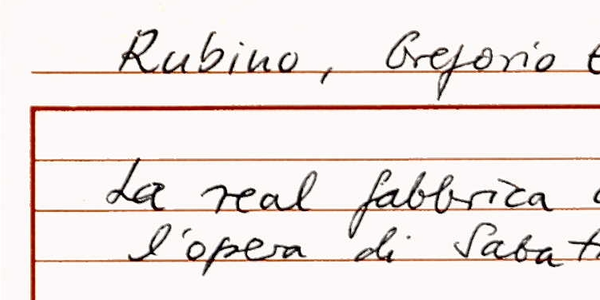 Rubino, Gregorio
La real fabbrica
l'opera di Sabat